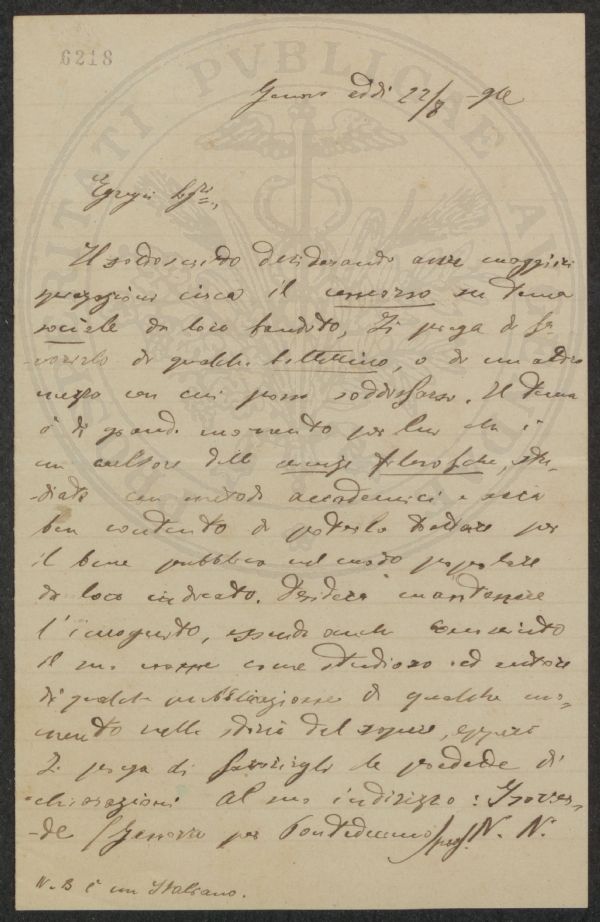 6218
Genova addi 22/8 -9
Egregi Sgri,
Il sottoscritto desiderando avere maggiori
spiegazioni circa il concorso su tema
sociale da loro bandito, Li prega di fa-
vorirlo di qualche bollettino, o di un altro
mezzo con cui possa soddisfarsi. Il tema
è di grande momento per lui che è
un cultore delle scienze filosofiche, stu-
diate con metodi accademici e saria
ben contento di poterlo trattare per
il bene pubblico nel modo popolare
da loro indicato. Desidera mantenere
l'incognito, essendo anche conosciuto
il suo nome come studioso ed autore
di qualche pubblicazione di qualche mo-
mento nella storia del sapere, eppure
Li prega di favorirgli le predette di-
chiarazioni al suo indirizzo:
-de (Genova per Pontedecimo) prof. N. N.
N.B è un Italiano.